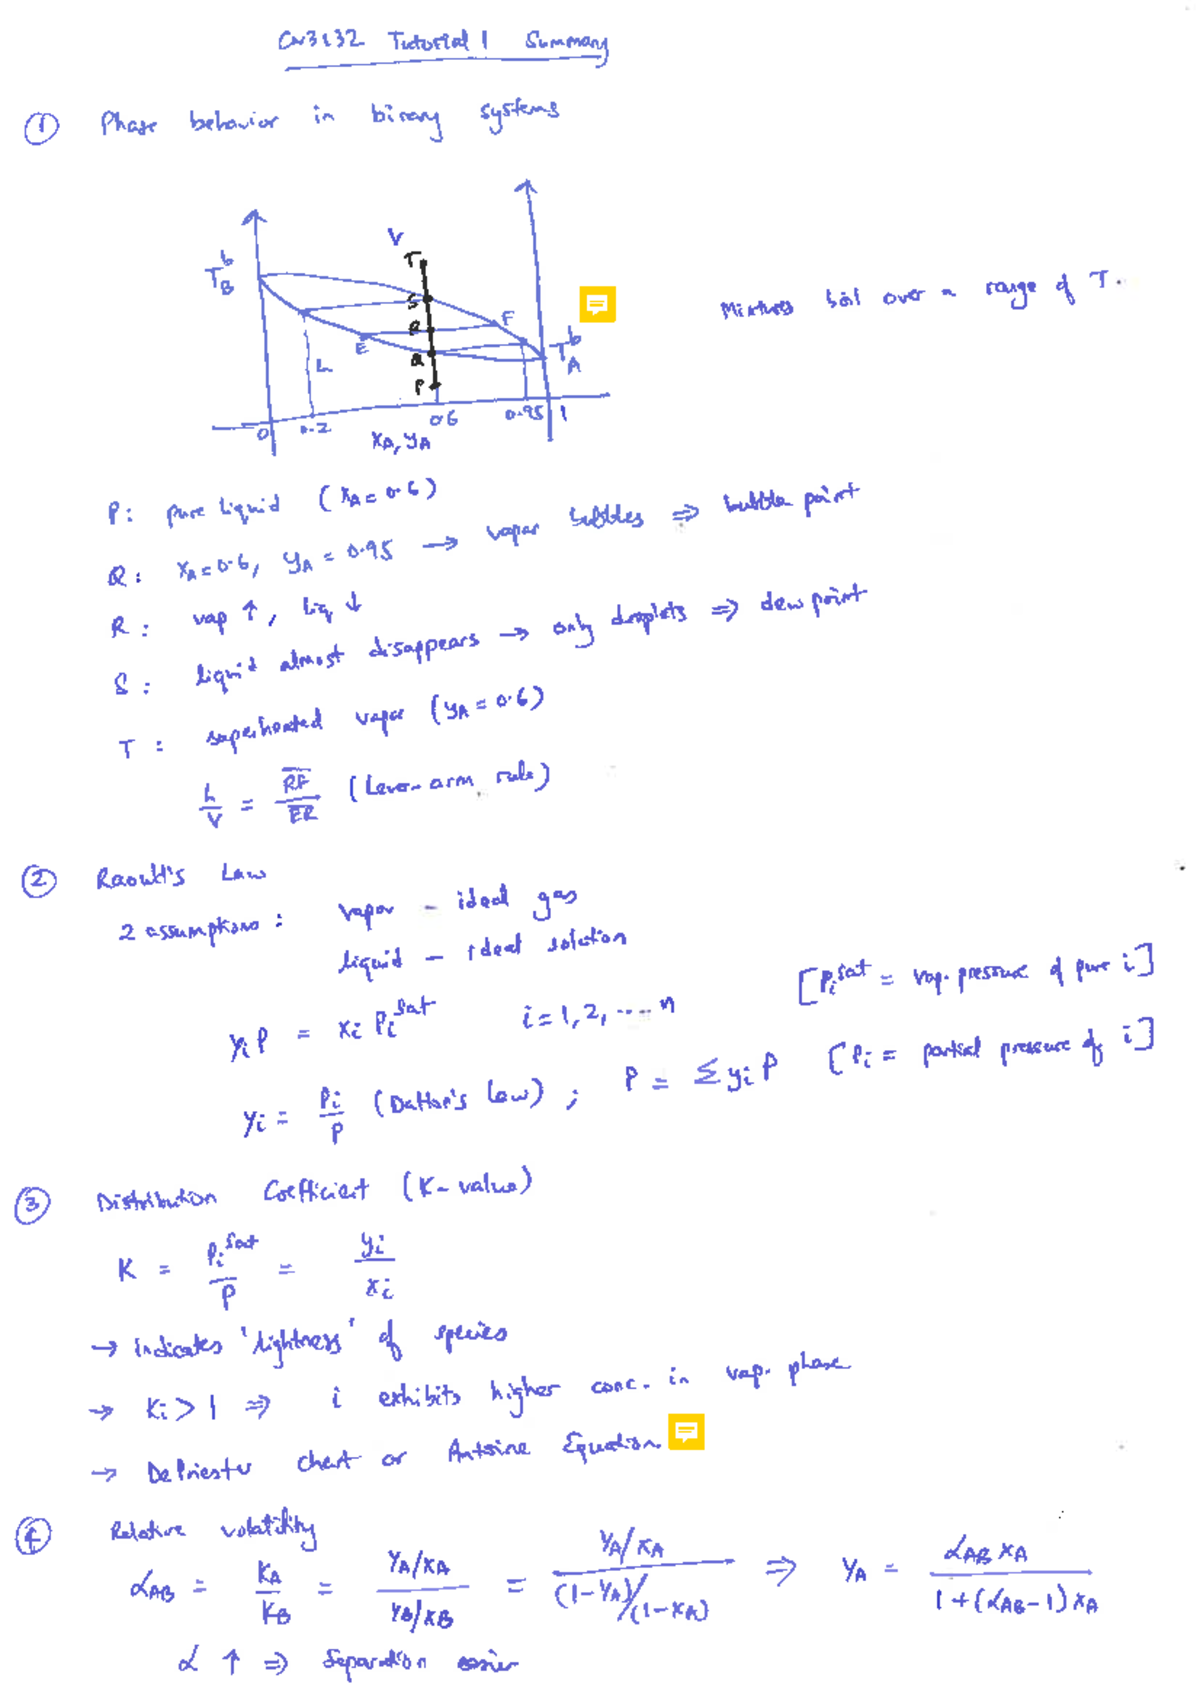 CN3132 Tutorial 1 Summary
① Phase behavior in binary systems
V
T_B^b
T
S
R
F
E
Q
L
P
T_A^b
Mixtures boil over a range of T.
0 0.2 0.6 0.95 1
x_A, y_A
P: pure liquid (x_A = 0.6)
Q: x_A = 0.6, y_A = 0.95 → vapor bubbles ⇒ bubble point
R: vap ↑, liq ↓
S: liquid almost disappears → only droplets ⇒ dew point
T: superheated vapor (y_A = 0.6)
L/V = RF/ER (Lever-arm rule)
② Raoult's Law
2 assumptions: vapor - ideal gas
liquid - ideal solution
y_i P = x_i P_i^sat i = 1, 2, ..... n [P_i^sat = vap. pressure of pure i]
y_i = P_i/P (Dalton's law) ; P = Σ y_i P [P_i = partial pressure of i]
③ Distribution Coefficient (K-value)
K = P_i^sat/P = y_i/x_i
→ indicates 'lightness' of species
→ K_i > 1 ⇒ i exhibits higher conc. in vap. phase
→ DePriester chart or Antoine Equation
④ Relative volatility
α_AB = K_A/K_B = (y_A/x_A)/(y_B/x_B) = (y_A/x_A)/((1-y_A)/(1-x_A)) ⇒ y_A = α_AB x_A/(1+(α_AB-1)x_A)
α ↑ ⇒ Separation easier